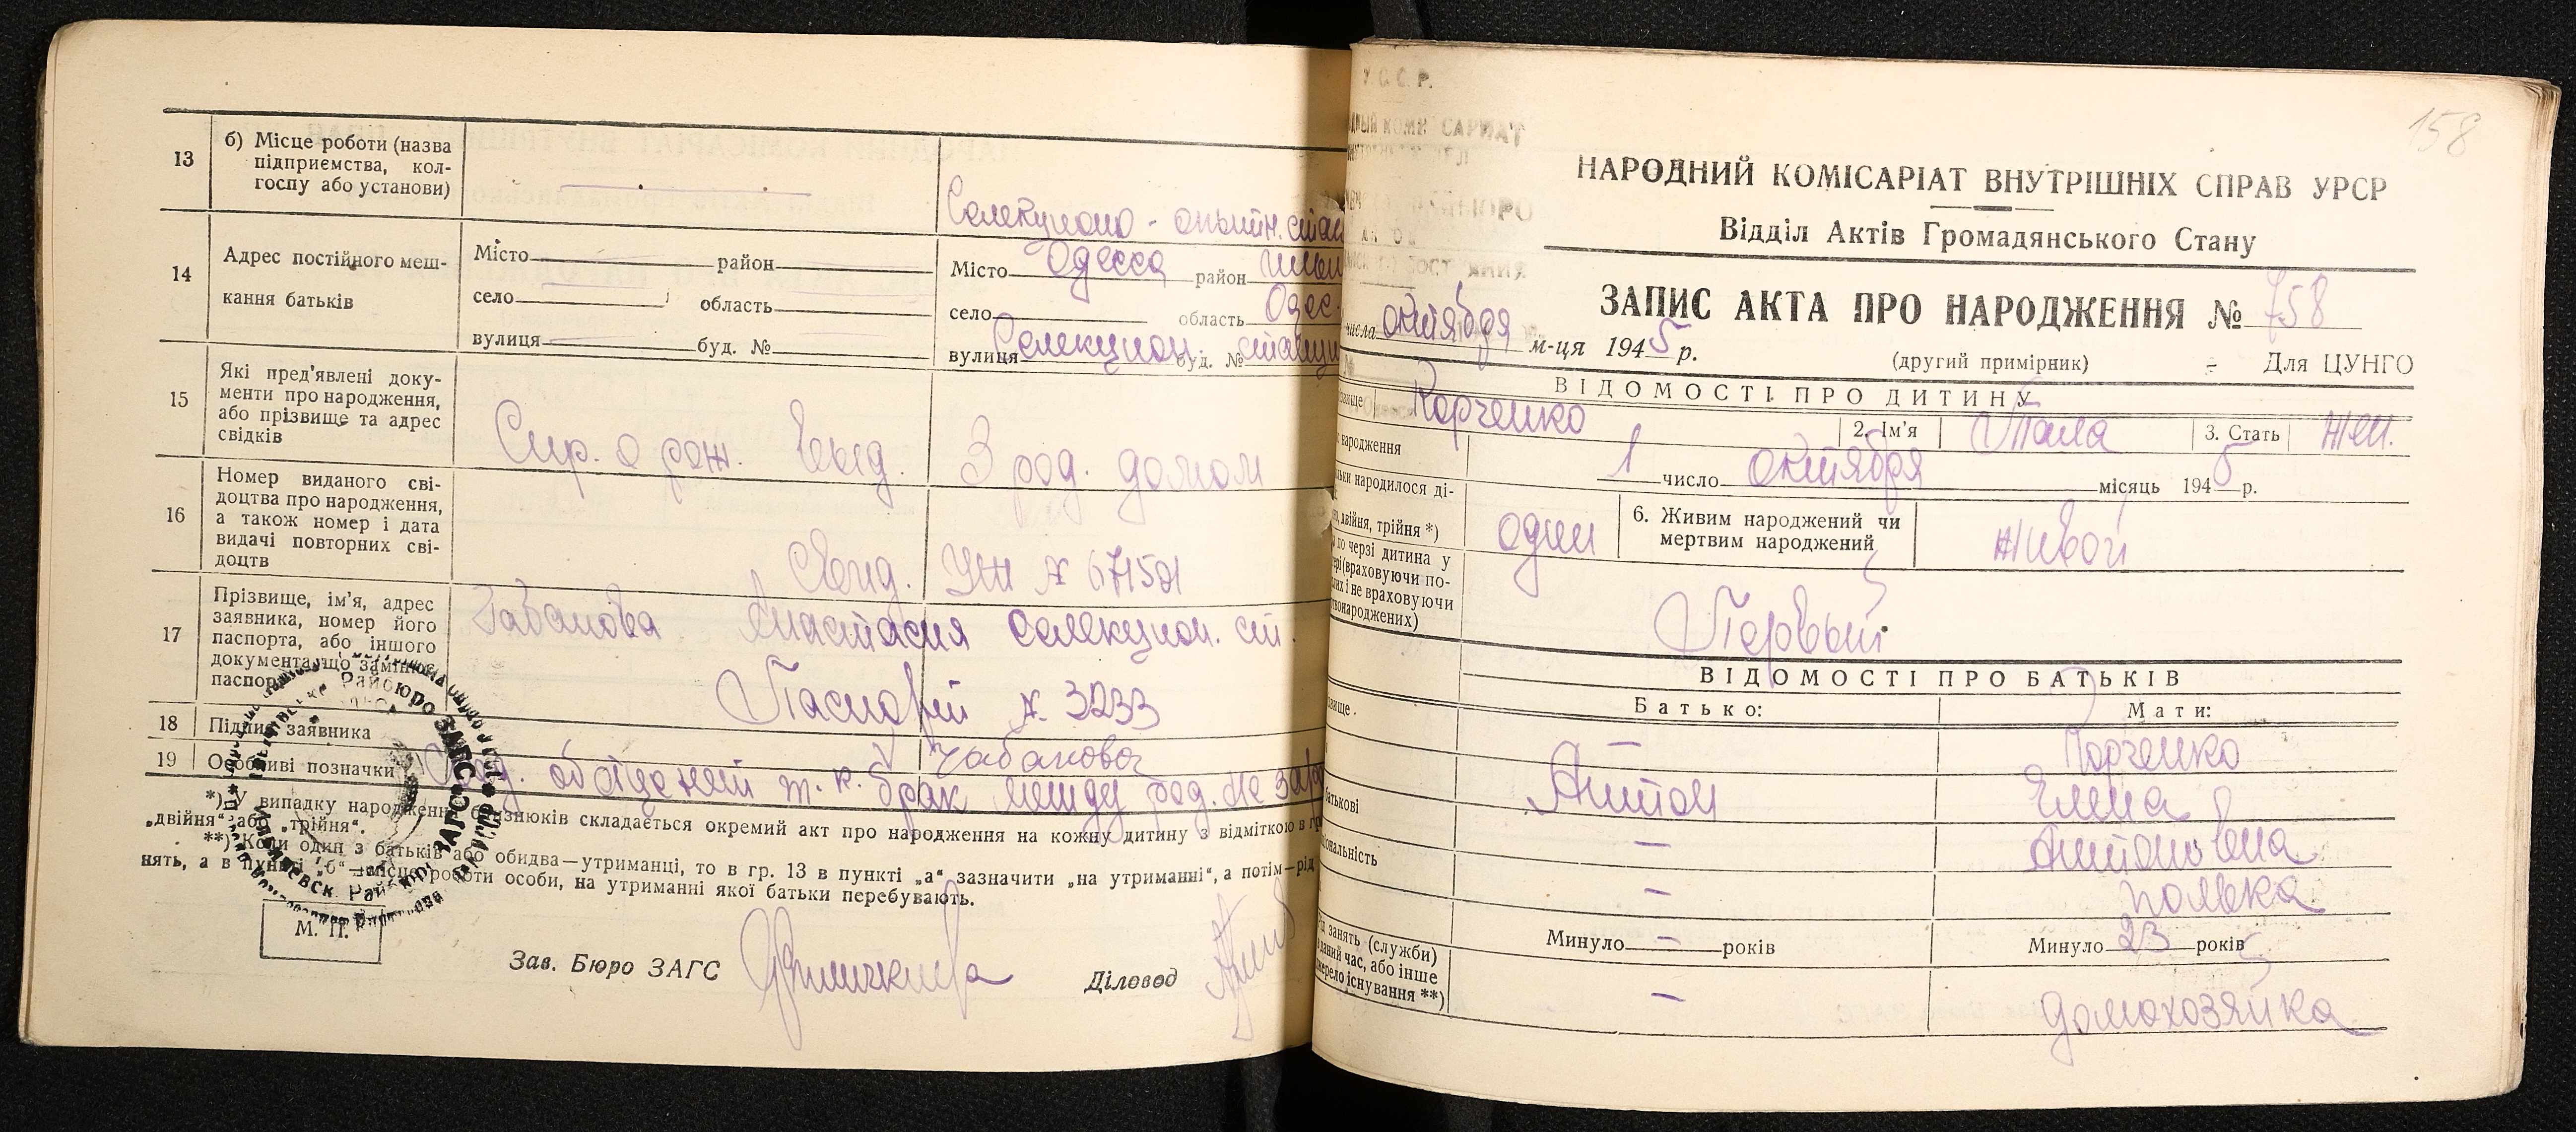 13
б) Місце роботи (назва
підприємства, кол-
госпу або установи)
Селекционо - опытн. стан
14
Адрес постійного меш-
кання батьків
Місто район
село область
вулиця буд. №
Місто Одесса район
село область Одес.
вулиця Селекцион. буд. № станц
15
Які пред'явлені доку-
менти про народження,
або прізвище та адрес
свідків
Спр. о рож. выд. 3 род. домом
16
Номер виданого сві-
доцтва про народження,
а також номер і дата
видачі повторних сві-
доцтв
Свид. № 671501
17
Прізвище, ім'я, адрес
заявника, номер його
паспорта, або іншого
документа, що замінює
паспорт
Чабанова Анастасия Селекцион. ст.
Паспорт № 3233
18 Підпис заявника
Чабанова
19 Особливі позначки
т. к. брак между род. не
*) У випадку народження близнюків складається окремий акт про народження на кожну дитину з відміткою в гр
„двійня“ або „трійня“.
**) Коли один з батьків або обидва—утриманці, то в гр. 13 в пункті „а“ зазначити „на утриманні“, а потім—рід
нять, а в пункті „б“—місце роботи особи, на утриманні якої батьки перебувають.
М. П.
Зав. Бюро ЗАГС
Діловод
У. С. С. Р.
158
НАРОДНИЙ КОМІСАРІАТ ВНУТРІШНІХ СПРАВ УРСР
Відділ Актів Громадянського Стану
ЗАПИС АКТА ПРО НАРОДЖЕННЯ № 758
числа октября м-ця 1945 р.
(другий примірник)
Для ЦУНГО
ВІДОМОСТІ ПРО ДИТИНУ
Корченко
2. Ім'я
3. Стать жен.
народження
1 число октября місяць 1945 р.
народилося ді-
двійня, трійня *)
один
6. Живим народжений чи
мертвим народжений
живой
по черзі дитина у
(враховуючи по-
і не враховуючи
Первый
ВІДОМОСТІ ПРО БАТЬКІВ
Батько:
Мати:
— Корченко
Антон Елена
— Антоновна
— полька
Минуло — років
Минуло 23 років
занять (служби)
час, або інше
існування **)
— домохозяйка